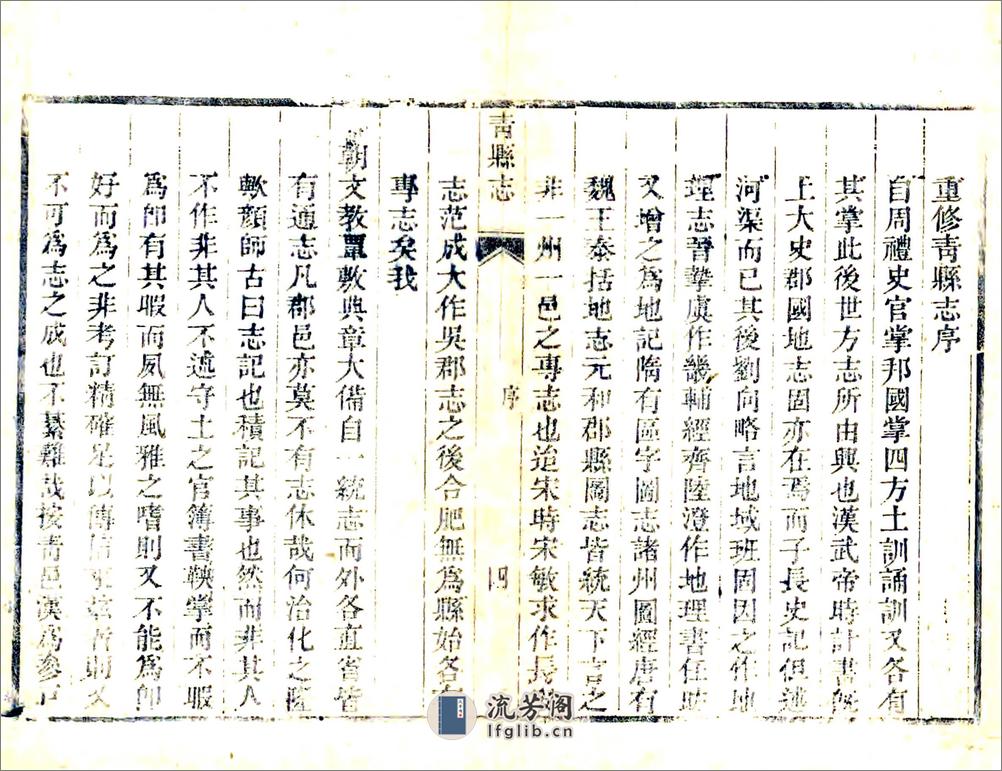 重修青縣志序
自周禮史官掌邦國掌四方土訓誦訓又各有
其掌此後世方志所由興也漢武帝時計書既
上大史郡國地志固亦在焉而子長史記但述
河渠而已其後劉向略言地域班固因之作地
理志晉摯虞作畿輔經齊陸澄作地理書任昉
又增之為地記隋有區宇圖志諸州圖經唐有
魏王泰括地志元和郡縣圖志皆統天下言之
非一州一邑之專志也迨宋時宋敏求作長
青縣志
序
四
志范成大作吳郡志之後合肥無為縣始各有
專志矣我
朝文教覃敷典章大備自一統志而外各直省皆
有通志凡郡邑亦莫不有志休哉何治化之隆
歟顏師古曰志記也積記其事也然而非其人
不作非其人不述守土之官簿書鞅掌而不暇
為即有其暇而夙無風雅之嗜則又不能為即
好而為之非考訂精確足以傳信則又
不可為志之成也不綦難哉按青邑漢為參戶
流芳阁
lfglib.cn